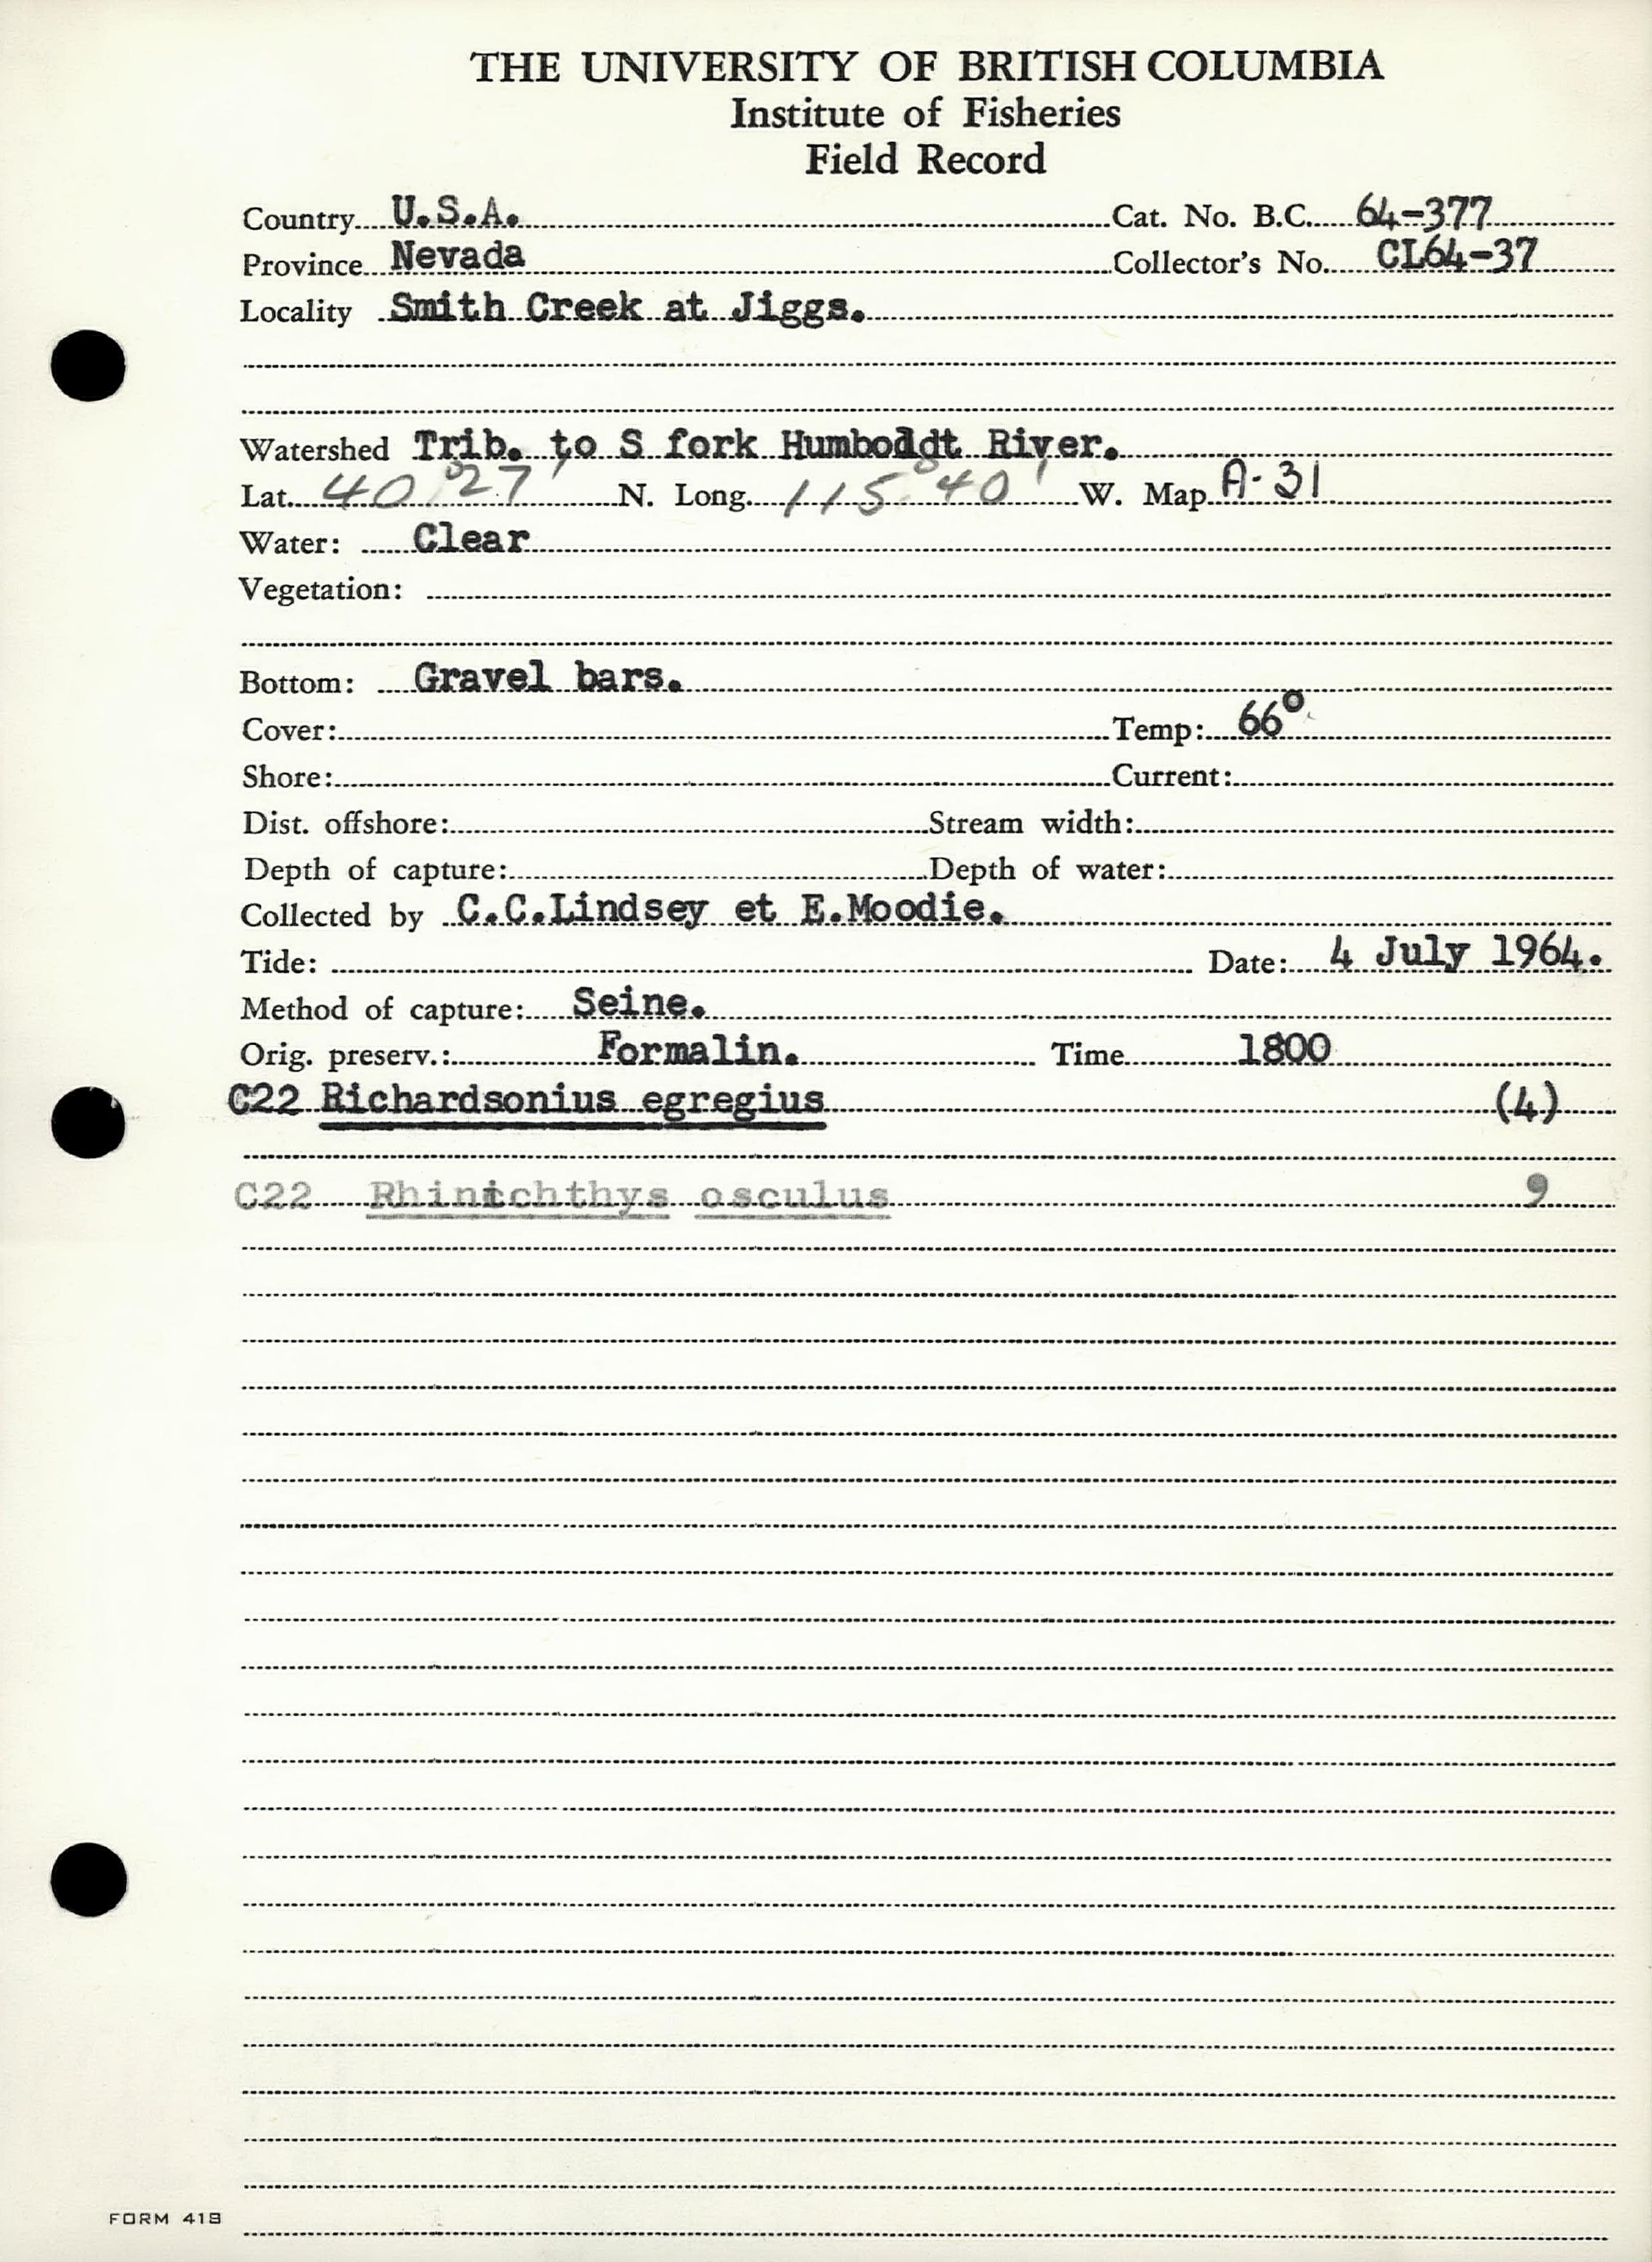 THE UNIVERSITY OF BRITISH COLUMBIA
Institute of Fisheries
Field Record
Country U.S.A. Cat. No. B.C. 64-377
Province Nevada Collector's No. CL64-37
Locality Smith Creek at Jiggs.
Watershed Trib. to S fork Humboldt River.
Lat. 40°27' N. Long. 115°40' W. Map A-31
Water: Clear
Vegetation:
Bottom: Gravel bars.
Cover: Temp: 66°
Shore: Current:
Dist. offshore: Stream width:
Depth of capture: Depth of water:
Collected by C.C.Lindsey et E.Moodie.
Tide: Date: 4 July 1964.
Method of capture: Seine.
Orig. preserv.: Formalin. Time 1800
C22 Richardsonius egregius (4)
C22 Rhinichthys osculus 9
FORM 419